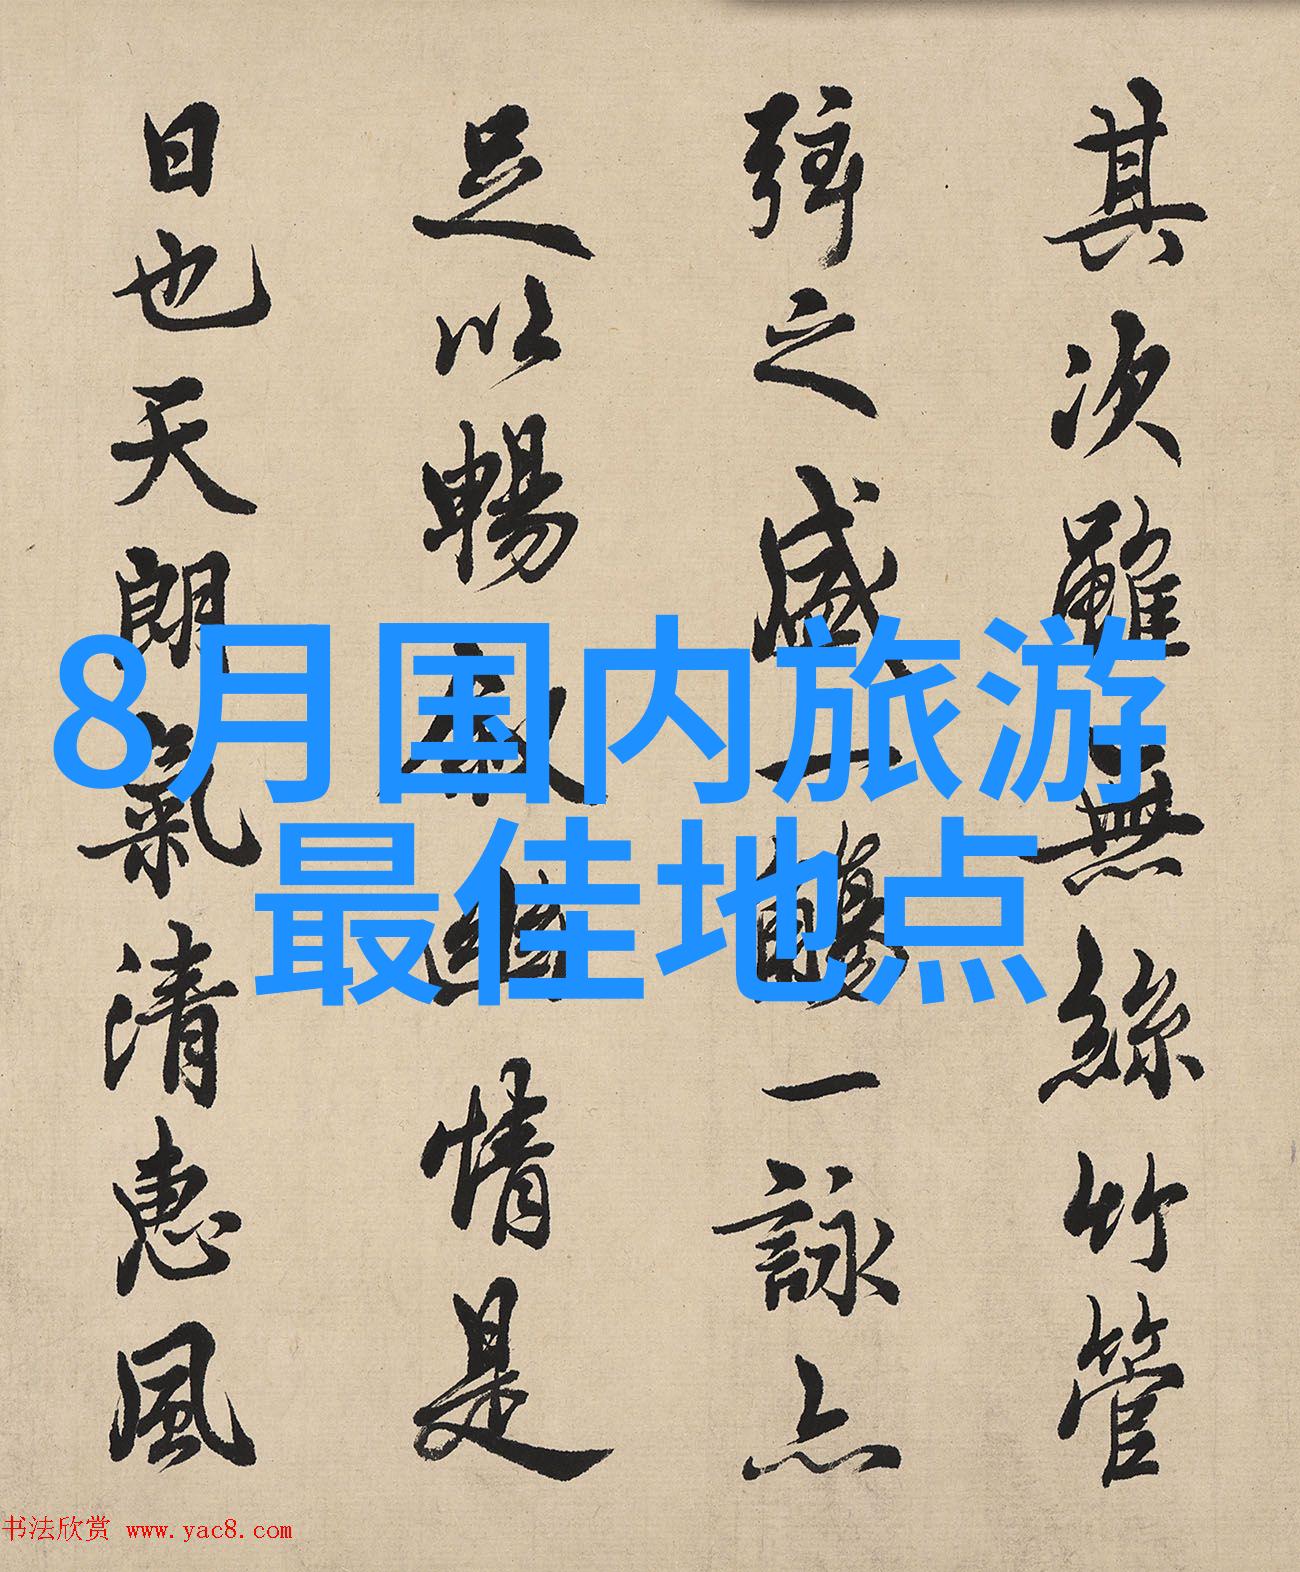 其次雖無絲竹管
弦之盛一觴一詠亦
足以暢敘幽情是
日也天朗氣清惠風
8月国内旅游
最佳地点
书法欣赏 www.yac8.com